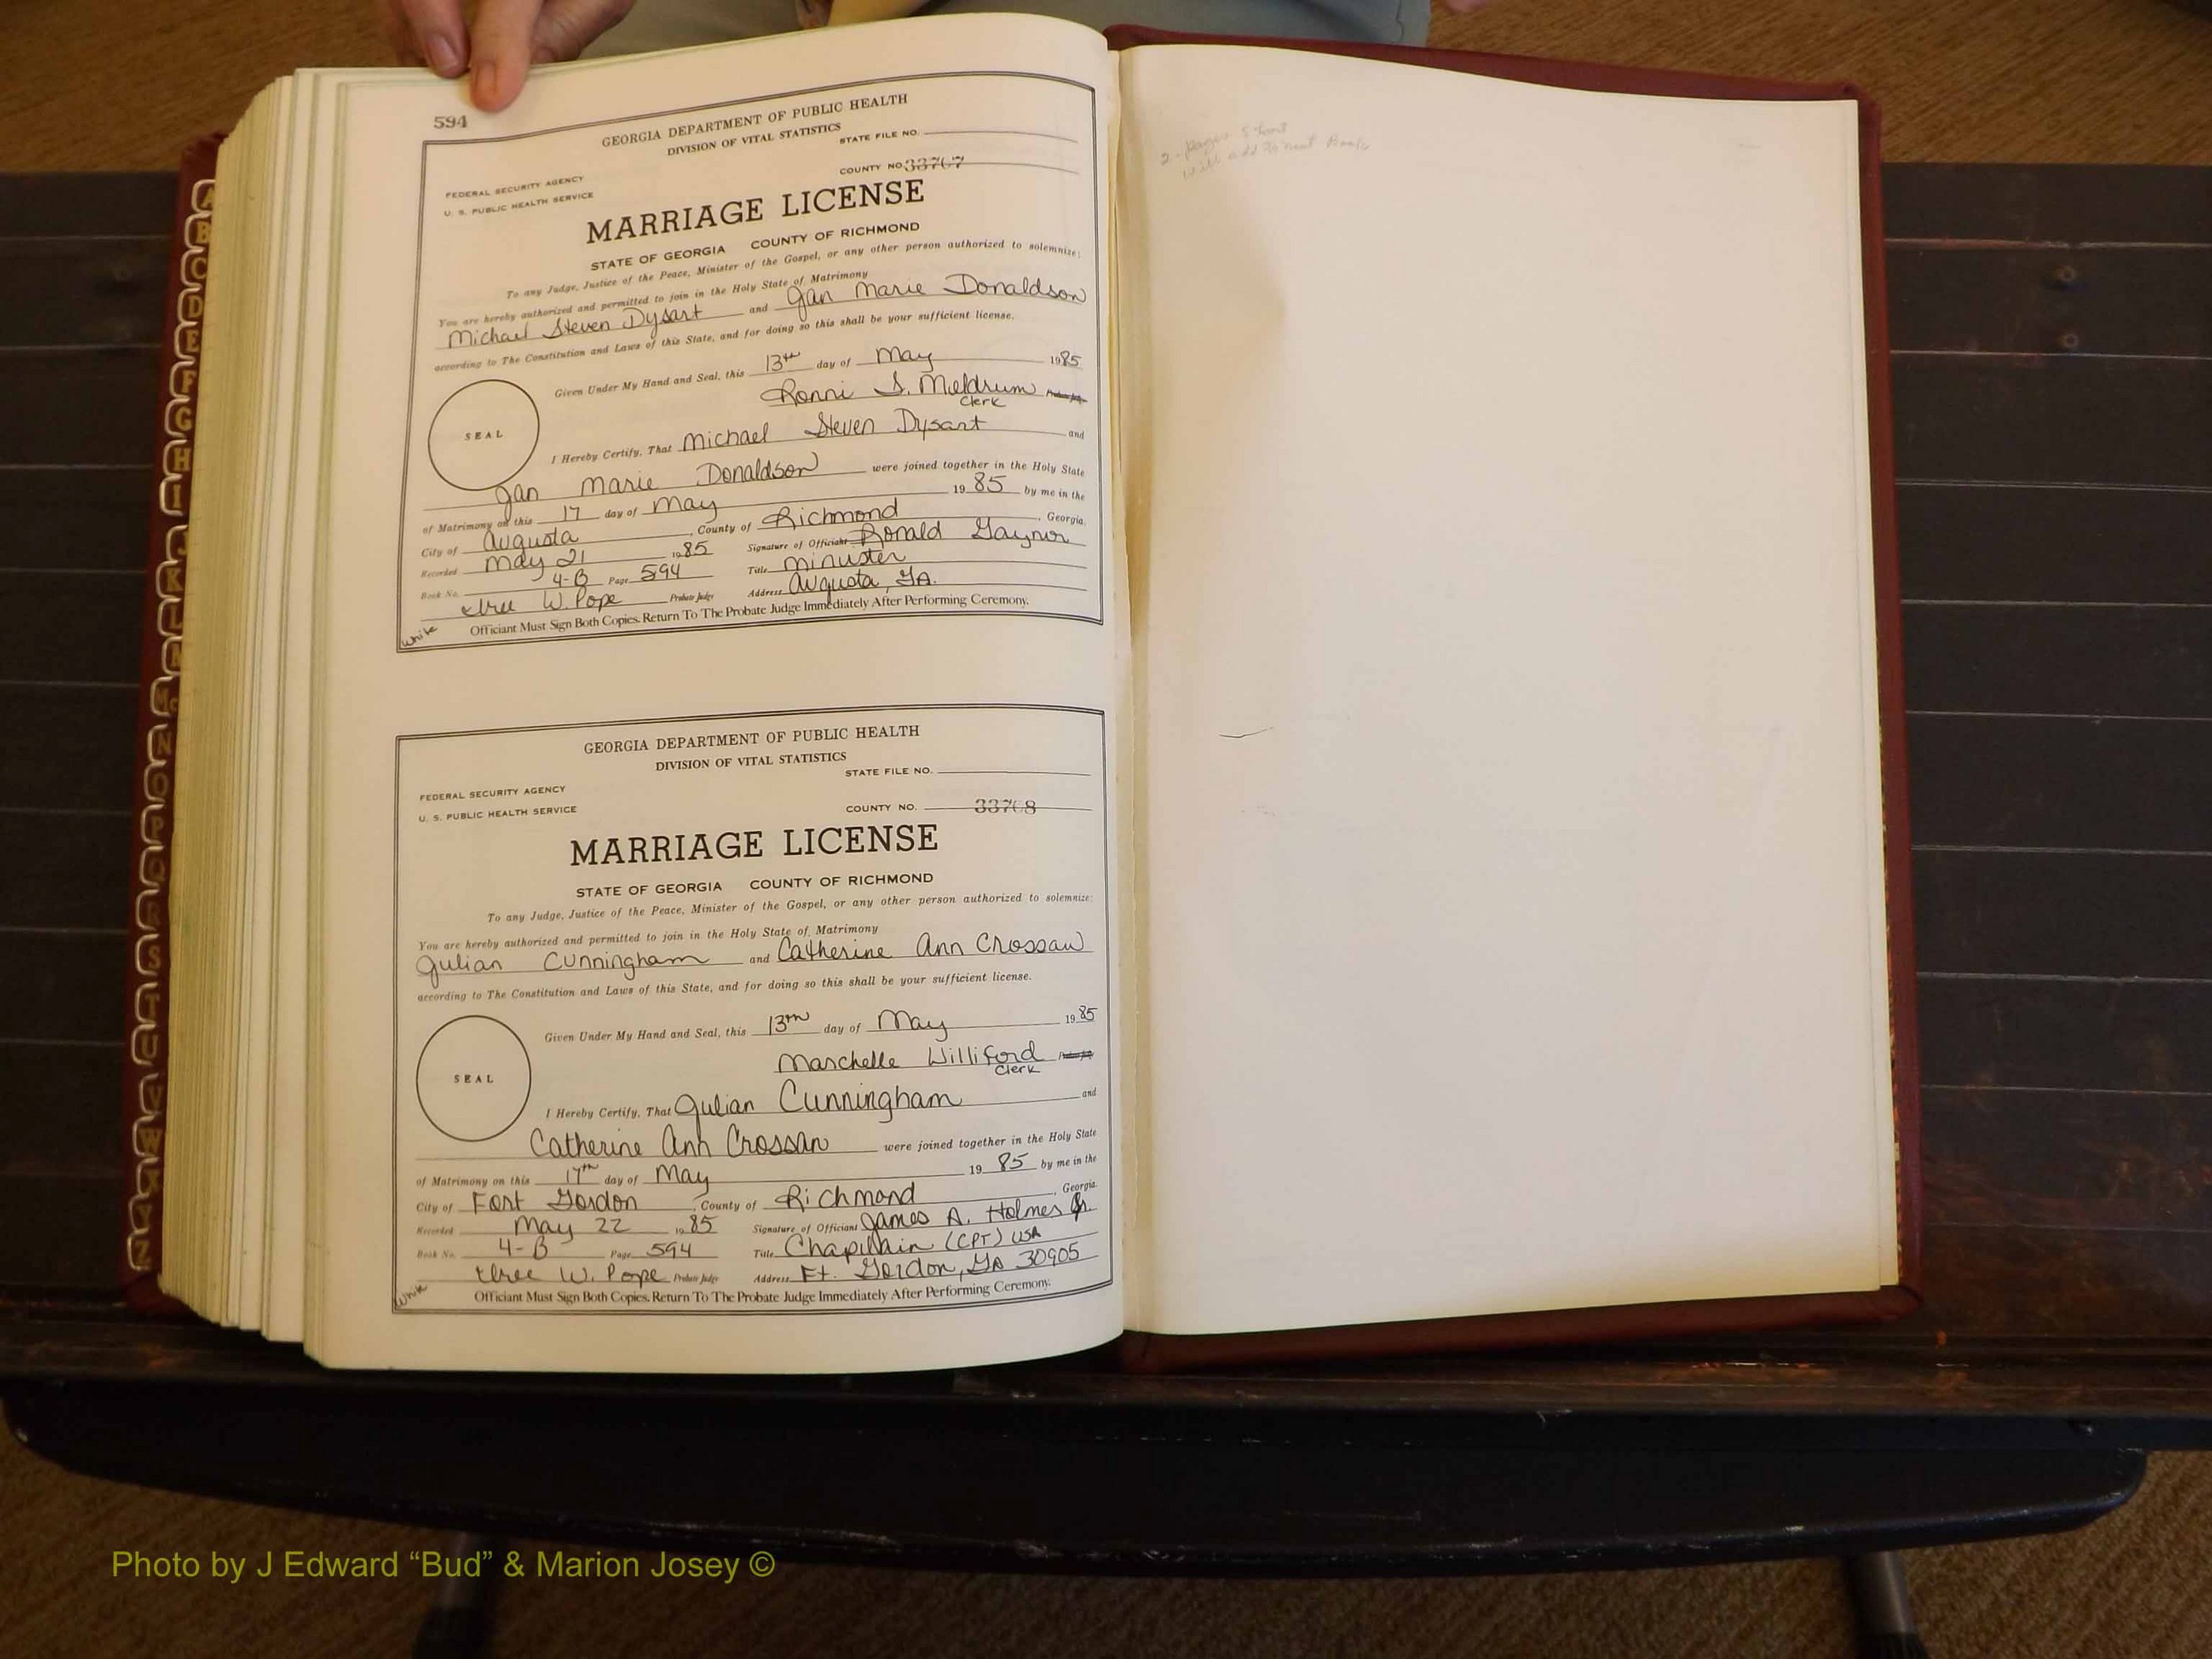 594
GEORGIA DEPARTMENT OF PUBLIC HEALTH
DIVISION OF VITAL STATISTICS
STATE FILE NO.
COUNTY NO. 33767
FEDERAL SECURITY AGENCY
U. S. PUBLIC HEALTH SERVICE
MARRIAGE LICENSE
STATE OF GEORGIA COUNTY OF RICHMOND
To any Judge, Justice of the Peace, Minister of the Gospel, or any other person authorized to solemnize:
You are hereby authorized and permitted to join in the Holy State of Matrimony
Michael Steven Dysart and Jan Marie Donaldson
according to The Constitution and Laws of this State, and for doing so this shall be your sufficient license.
Given Under My Hand and Seal, this 13th day of May 1985
Ronni S. Meldrum Probate Judge
Clerk
SEAL
I Hereby Certify, That Michael Steven Dysart and
Jan Marie Donaldson were joined together in the Holy State
of Matrimony on this 17 day of May 19 85 by me in the
City of Augusta, County of Richmond, Georgia.
Recorded May 21 1985 Signature of Officiant Ronald Gaynor
Book No. 4-B Page 594 Title Minister
W. Pope Probate Judge Address Augusta, GA.
White Officiant Must Sign Both Copies. Return To The Probate Judge Immediately After Performing Ceremony.
GEORGIA DEPARTMENT OF PUBLIC HEALTH
DIVISION OF VITAL STATISTICS
STATE FILE NO.
FEDERAL SECURITY AGENCY
U. S. PUBLIC HEALTH SERVICE
COUNTY NO. 33768
MARRIAGE LICENSE
STATE OF GEORGIA COUNTY OF RICHMOND
To any Judge, Justice of the Peace, Minister of the Gospel, or any other person authorized to solemnize:
You are hereby authorized and permitted to join in the Holy State of Matrimony
Julian Cunningham and Catherine Ann Crossan
according to The Constitution and Laws of this State, and for doing so this shall be your sufficient license.
Given Under My Hand and Seal, this 13th day of May 1985
Marchelle Williford Probate Judge
Clerk
SEAL
I Hereby Certify, That Julian Cunningham and
Catherine Ann Crossan were joined together in the Holy State
of Matrimony on this 17th day of May 19 85 by me in the
City of Fort Gordon, County of Richmond, Georgia.
Recorded May 22 1985 Signature of Officiant James A. Holmes Jr.
Book No. 4-B Page 594 Title Chaplain (CPT) USA
W. Pope Probate Judge Address Ft. Gordon, GA 30905
White Officiant Must Sign Both Copies. Return To The Probate Judge Immediately After Performing Ceremony.
2 - pages Short
will add to next Book
A
B
C
D
E
F
G
H
I
J
K
L
M
Mc
N
O
P
Q
R
S
T
U
V
W
Y
Z
Photo by J Edward “Bud” & Marion Josey ©